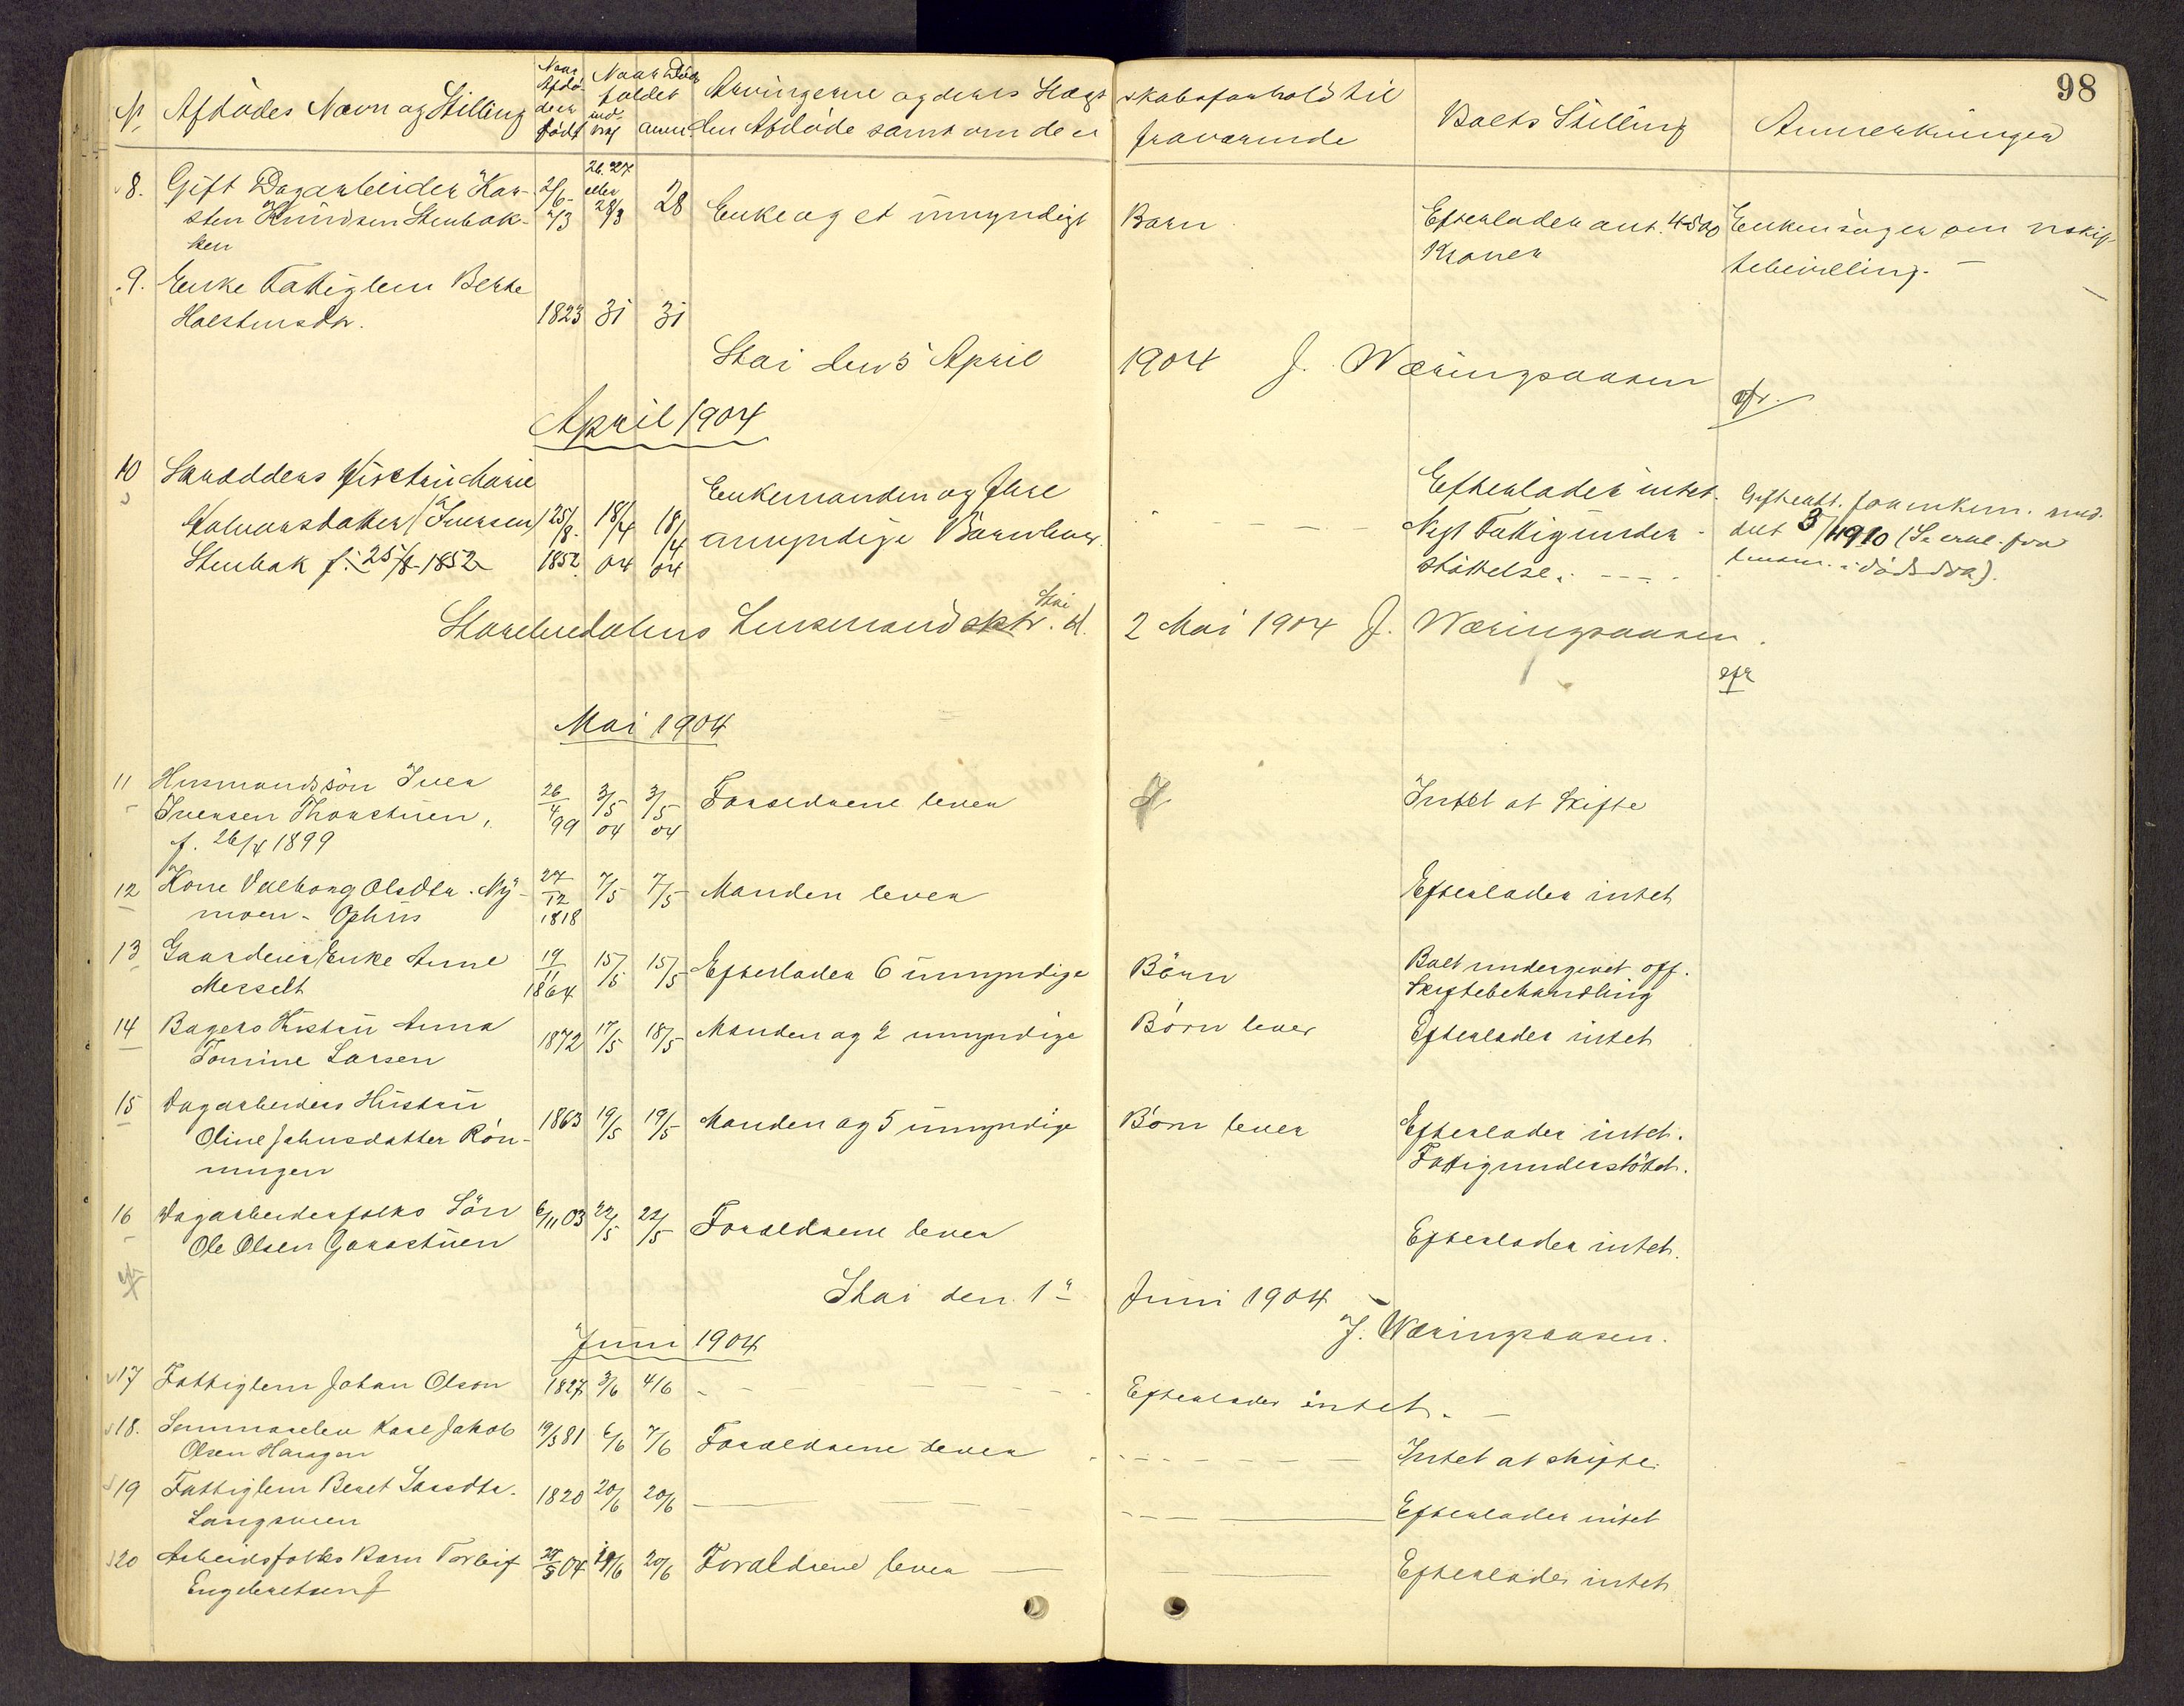 98
Nr. Afdødes Navn og Stilling Naar Afdø- den født Naar Dødsfaldet indtraf anm. Arvingerne og deres Slægt skabsforhold til
den Afdøde samt om de er fraværende Boets Stilling Anmerkninger
8. Gift Dagarbeider Kar- 2/6- 26. 27 eller 28/3 28 Enke og et umyndigt Barn Efterlader ant. 4500 Enken søger om uskif-
sten Knudsen Stenbak- 73 Kroner tebevilling. —
ken
9. Enke Fattiglem Berte
Halstensdr. 1823 31 31
Stai den 5 April 1904 J. Væringsaasen
April 1904
10 Skrædders Hustru Marie Enkemanden og flere Efterlader intet.
Halvorsdatter (Iversen) 25/8. 18/4 18/4 umyndige Børn Nyt Fattigunder-
Stenbak f: 25/8 1852 1852 04 04 støttelse.
det 3/4 1910
Storelvedalens Lensmandsktr. Stai d. 2 Mai 1904 J. Væringsaasen
Mai 1904
11 Husmandssøn Iver 26/4 3/5 3/5 Forældrene lever Intet at skifte
Iversen Thorstuen, 99 04 04
f. 26/4 1899
12 Kone Valborg Olsdtr. Ny- 27/12 7/5 7/5 Manden lever Efterlader intet
moen - Ophus 1818
13 Gaardeier Enke Anne 19/11 15/5 15/5 Efterlader 6 umyndige Børn Boet undergivet off.
Messelt 1864 Skiftebehandling
14 Bagers Hustru Anna 1872 17/5 18/5 Manden og 2 umyndige Børn lever Efterlader intet
Tomine Larsen
15 Dagarbeiders Hustru 1863 19/5 19/5 Manden og 5 umyndige Børn lever Efterlader intet.
Oline Johnsdatter Røn- Fattigunderstøttet.
ningen
16 Dagarbeiderfolks Søn 6/11 03 22/5 22/5 Forældrene lever Efterlader intet.
Ole Olsen Garastuen
Stai den 1ste Juni 1904
J. Væringsaasen.
Juni 1904
17 Fattiglem Johan Olson 1827 3/6 4/6 Efterlader intet. —
18. Seminarelev Karl Jakob 19/3 81 6/6 7/6 Forældrene lever Intet at skifte.
Olsen Haugen
19 Fattiglem Beret Larsdtr. 1820 20/6 20/6 Efterlader intet
Langmoen
20 Arbeidsfolks Barn Torleif 27/5 04 19/6 20/6 Forældrene lever Efterlader intet
Engebretsen